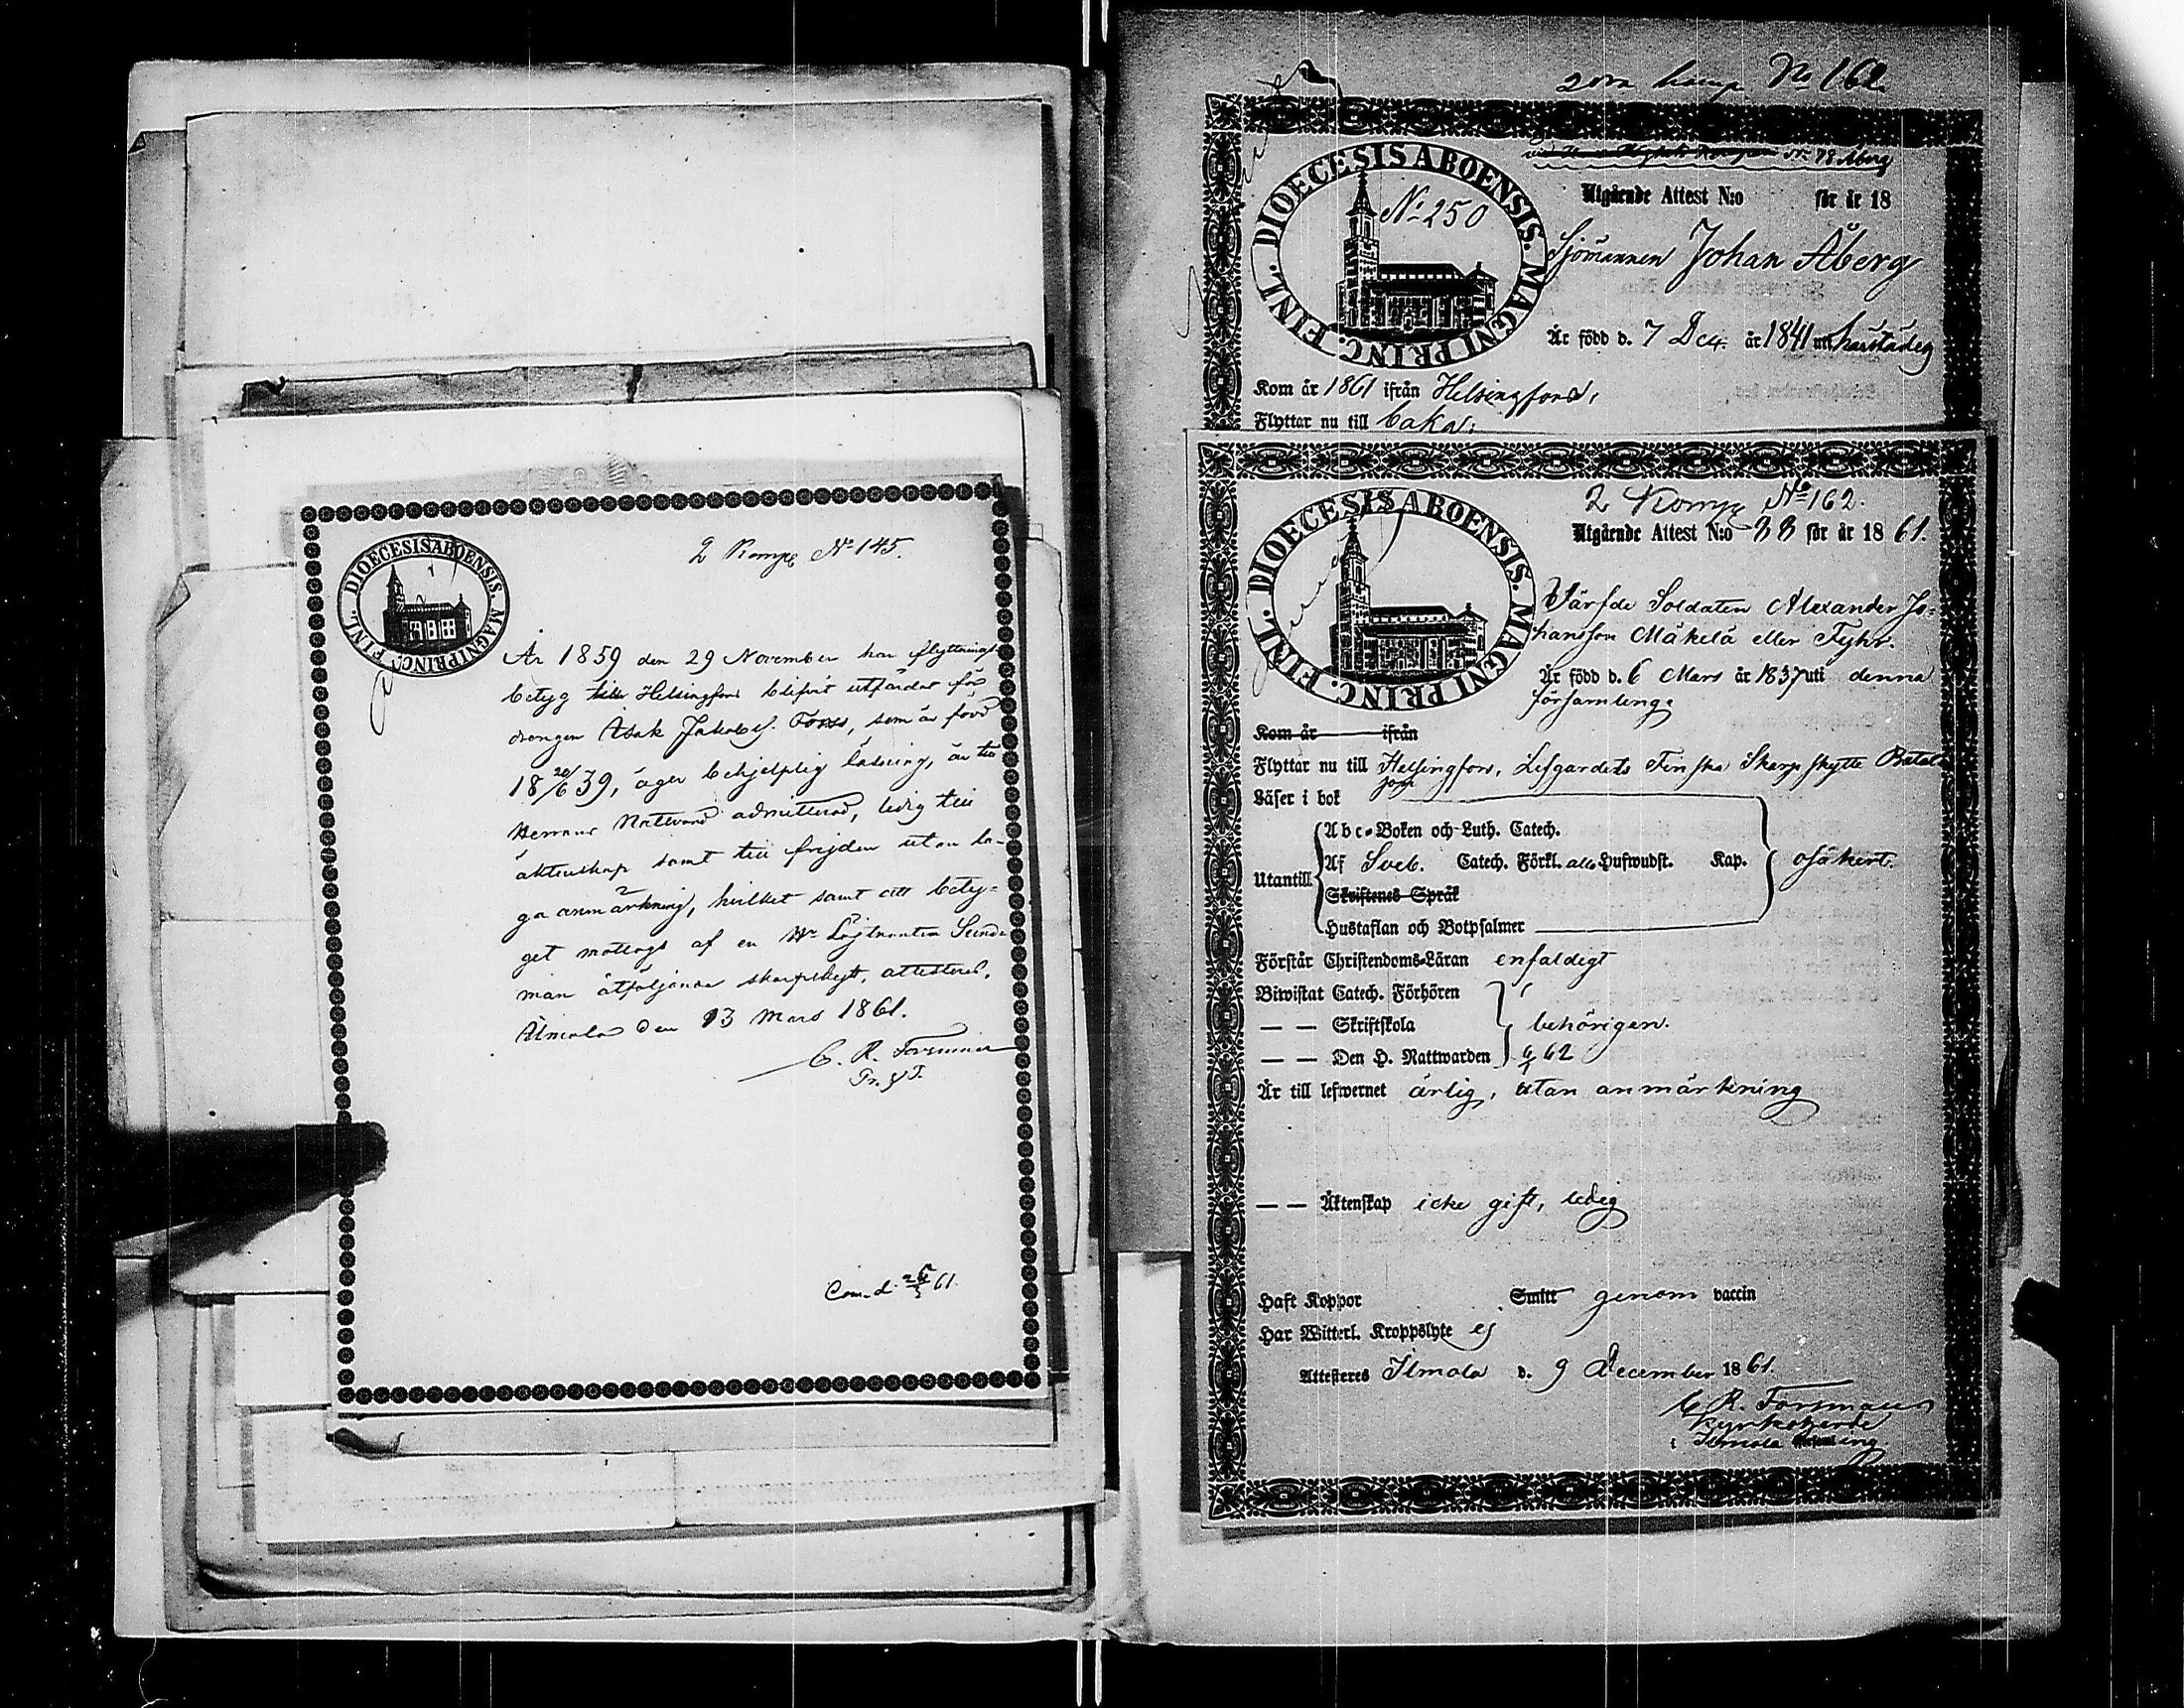 2 Komp. No 145.
DIOECESIS ABOENSIS. MAGNI PRINC. FINL.
År 1859 den 29 November har flyttnings
betyg till Helsingfors blifvit utfärdat för
drengen Isak Jakobss. Forss, som är född
18 20/6 39, äger behjelplig läsning, är till
Herrans Nattvard admitterad, ledig till
äktenskap samt till frejden utan
anmärkning, hvilket samt att bety=
get mottagits af en Hr Löjtnanten
man åtföljande skarpskytt, attesteras.
Ilmola den 13 Mars 1861.
C. R. Forsman
61.
2dra komp. No 162.
No 78 Åberg
DIOECESIS ABOENSIS. MAGNI PRINC. FINL.
No 250
Utgående Attest N:o för år 18
Sjömannen Johan Åberg
Är född d. 7 Dec. år 1841 uti härstädes
Kom år 1861 ifrån Helsingfors,
Flyttar nu till baka.
2 Komp No 162.
DIOECESIS ABOENSIS. MAGNI PRINC. FINL.
Utgående Attest N:o 88 för år 1861.
Värfde Soldaten Alexander Jo=
hansson Mäkelä eller Fyhr.
Är född d. 6 Mars år 1837 uti denna
församling.
Kom år ifrån
Flyttar nu till Helsingfors, Lifgardets Finska Skarpskytte Batal
Läser i bok
Utantill
Abc-Boken och Luth. Catech.
Af Sveb. Catech. Förkl. alla Hufwudst. Kap.
osäkert.
Skriftenes Språk
Hustaflan och Botpsalmer
Förstår Christendoms-Läran enfaldigt
Biwistat Catech. Förhören
— — Skriftskola
behörigen.
— — Den H. Nattwarden
Är till lefwernet ärlig, utan anmärkning
— — Äktenskap icke gift, ledig
Haft Koppor Smitt genom vaccin
Har Witterl. Kroppslyte ej
Attesteras Ilmola d. 9 December 1861.
C. R. Forsman
Kyrkoherde
i Ilmola